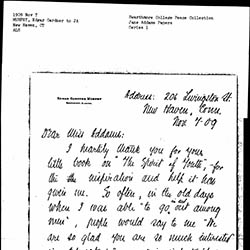 1909 Nov 7
MURPHY, Edgar Gardner to JA
New Haven, CT
ALS
Swarthmore College Peace Collection
Jane Addams Papers
Series 1
EDGAR GARDNER MURPHY
Address: 206 Livingston St.
New Haven, Conn.
Nov 7. 09
Dear Miss Addams:
I heartily thank you for your
little book on "The Spirit of Youth", for
the inspiration and help it has
given me. So often, in the old days
when I was able "to go out among
men", people would say to me "We
are so glad you are so much interested